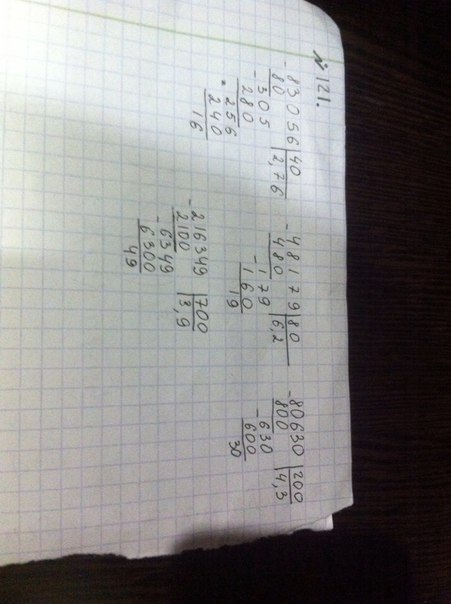 № 121.
- 83056 | 40
80 | 2,76
- 305
280
- 256
240
16
- 48179 | 80
480 | 6,2
- 179
160
19
- 80630 | 200
800 | 4,3
- 630
600
30
- 216349 | 700
2100 | 3,9
- 6349
6300
49